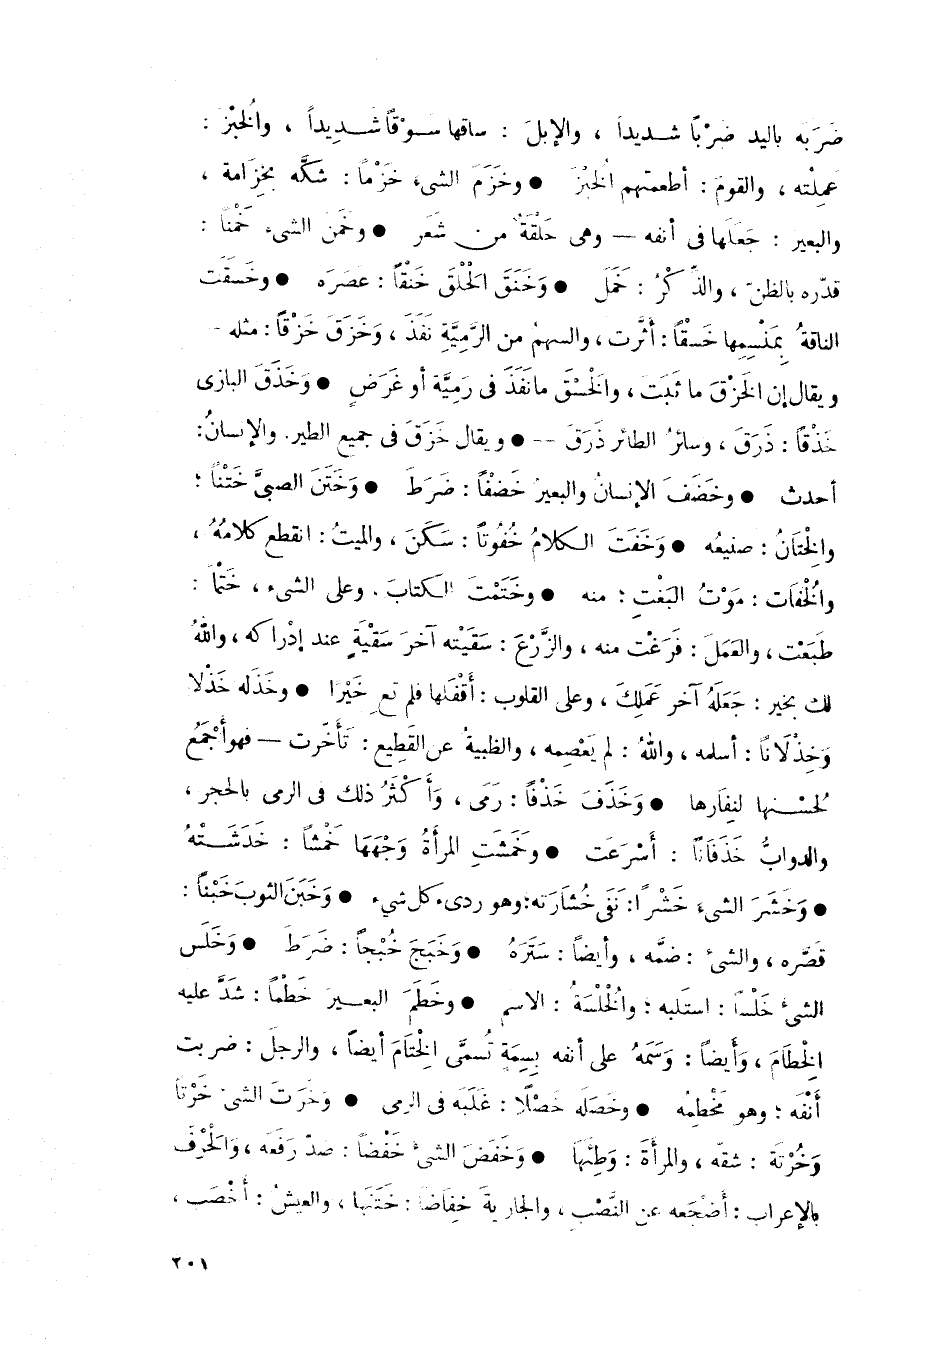 ضَرَبَه باليد ضَرْبًا شديداً ، والإبلَ : ساقها سَوْقًا شديداً ، والُخبْزَ :
عمِلْته ، والقومَ : أطعمتهم الُخبْزَ ● وخَزَمَ الشىءَ خَزْماً : شكَّه بخِزَامة ،
والبعير : جَعَلَها فى أنفه — وهى حَلْقَةٌ من شَعَر ● وخَمَنَ الشىءَ خَمْناً :
قدّره بالظنّ ، والذِّكْرُ : خَمَلَ ● وَخَنَقَ الَحْلْقَ خَنْقاً : عصَرَه ● وخَسَقَت
الناقةُ بِمَنْسِمِها خَسقْاً : أثَّرت ، والسهمُ من الرَّمِيَّةِ نَفَذَ ، وَخَزَقَ خَزْقاً : مثله -
ويقال إن الَخَزْقَ ما ثَبَتَ ، والَخْسْقَ مانَفَذَ فى رَمِيَّة أو غَرَضٍ ● وَخَذَقَ البازى
خَذْقاً : ذَرَقَ ، وسائرُ الطائر ذَرَقَ -- ● ويقال خَزَقَ فى جميع الطير. والإنسانُ :
أحدث ● وخَضَفَ الإنسانُ والبعيرُ خَضفْاً : ضَرَطَ ● وَخَتَنَ الصبىَّ خَتْناً ؛
والِختَانُ : صنيعُه ● وَخَفَتَ الكلامُ خُفُوتاً : سَكَنَ ، والميتُ : انقطع كلامُهُ ،
والُخْفَات : مَوْتُ البَغْتِ ؛ منه ● وخَتَمْتَ الكتابَ . وعلى الشىء ، خَتْماً :
طَبَعْت ، والعَمَلَ : فَرَغْتَ منه ، والزَّرْعَ : سَقَيْته آخرَ سَقْيَةٍ عند إدْراكه ، واللهُ
لك بخير : جَعَلَهُ آخر عَمَلِكَ ، وعلى القلوب : أقْفَلها فلم تَعِ خَيْرًا ● وخَذَله خَذْلًا
وَخِذْلَانًا : أسلمه ، واللهُ : لم يَعْصِمه ، والظبيةُ عن القَطِيع : تَأَخَّرت — فهو أجْمَعُ
لحُسْنها لنِفَارها ● وَخَذَفَ خَذْفاً : رَمَى ، وَأَكْثَرُ ذلك فى الرمى بالحجر ،
والدوابُّ خَذَفَاناً : أَسْرَعَت ● وخَمَشَتِ المرأةُ وَجْهَهَا خَمْشاً : خَدَشَتْهُ
● وَخَشَرَ الشىءَ خَشْرًا : نَفَى خُشَارَته ؛ وهو ردىء كل شىء ● وَخَبَنَ الثوبَ خَبْناً :
قَصَّره ، والشىءَ : ضمَّه ، وأيضاً : سَتَرَهُ ● وَخَبَجَ خُبْجاً : ضَرَطَ ● وَخَلَسَ
الشىءَ خَلْساً : استَلبه ؛ والُخْلْسَةُ : الاسم ● وخَطَمَ البعيرَ خَطْماً : شَدَّ عليه
الِخطَامَ ، وَأَيضاً : وَسَمَهُ على أنفه بِسِمَةٍ تُسمَّى الِختَامَ أيضاً ، والرجلَ : ضربت
أنْفَه ؛ وهو مَخْطِمُه ● وخَصَلَه خَصْلًا : غَلَبَه فى الرمى ● وَخَرَتَ الشىءَ خَرْتاً
وَخُرْتَة : شقّه ، والمرأةَ : وَطِئَها ● وَخَفَضَ الشىءَ خَفْضاً : ضدّ رَفَعَه ، وَالَحْرْفَ
بالإعراب : أضْجَعه عن النَّصْبِ ، والجاريةَ خِفَاضاً : خَتَنَها ، والعيشُ : أخْصَب ،
٢٠١